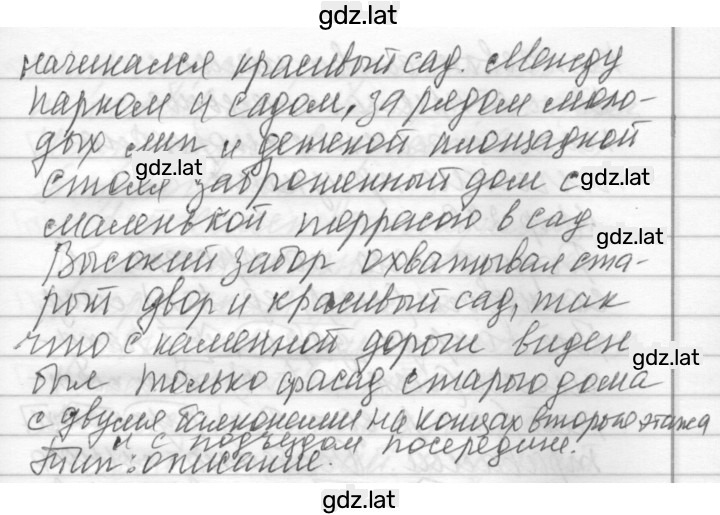 gdz.lat
начинался красивый сад. Между
парком и садом, за рядом моло-
дых лип и детской площадкой
gdz.lat
стоял заброшенный дом с
gdz.lat
маленькой террасою в сад.
gdz.lat
Высокий забор охватывал ста-
рый двор и красивый сад, так
что с каменной дороги виден
gdz.lat
был только фасад старого дома
с двумя балконами на концах второго этажа
и с подъездом посередине.
Тип: описание.
gdz.lat